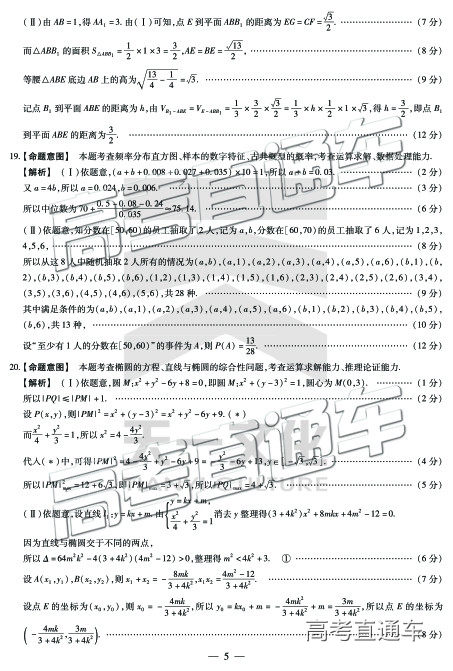 (Ⅱ)由 AB=1,得 AA₁=3. 由(Ⅰ)可知,点 E 到平面 ABB₁ 的距离为 EG=CF=√3/2. ……(7 分)
而△ABB₁ 的面积 S△ABB₁=1/2×1×3=3/2,AE=BE=√13/2, ……(8 分)
等腰△ABE 底边 AB 上的高为√(13/4-1/4)=√3. ……(9 分)
记点 B₁ 到平面 ABE 的距离为 h,由 V_{B₁-ABE}=V_{E-ABB₁}=1/3×3/2×√3/2=1/3×h×1/2×1×√3,得 h=3/2,即点 B₁
到平面 ABE 的距离为3/2. ……(12 分)
19.【命题意图】 本题考查频率分布直方图、样本的数字特征、古典概型的概率,考查运算求解、数据处理能力.
【解析】 (Ⅰ)依题意,(a+b+0.008+0.027+0.035)×10=1,所以 a+b=0.03. ……(2 分)
又 a=4b,所以 a=0.024,b=0.006. ……(3 分)
所以中位数为 70+(0.5-0.08-0.24)/0.035≈75.14. ……(6 分)
(Ⅱ)依题意,知分数在[50,60)的员工抽取了 2 人,记为 a,b,分数在[60,70)的员工抽取了 6 人,记为 1,2,3,
4,5,6, ……(8 分)
所以从这 8 人中随机抽取 2 人所有的情况为(a,b),(a,1),(a,2),(a,3),(a,4),(a,5),(a,6),(b,1),(b,
2),(b,3),(b,4),(b,5),(b,6),(1,2),(1,3),(1,4),(1,5),(1,6),(2,3),(2,4),(2,5),(2,6),(3,4),
(3,5),(3,6),(4,5),(4,6),(5,6),共 28 种. ……(9 分)
其中满足条件的为(a,b),(a,1),(a,2),(a,3),(a,4),(a,5),(a,6),(b,1),(b,2),(b,3),(b,4),(b,5),
(b,6),共 13 种, ……(10 分)
设“至少有 1 人的分数在[50,60)”的事件为 A,则 P(A)=13/28. ……(12 分)
20.【命题意图】 本题考查椭圆的方程、直线与椭圆的综合性问题,考查运算求解能力、推理论证能力.
【解析】 (Ⅰ)依题意,圆 M:x²+y²-6y+8=0,即圆 M:x²+(y-3)²=1,圆心为 M(0,3). ……(1 分)
所以|PQ|≤|PM|+1. ……(2 分)
设 P(x,y),则|PM|²=x²+(y-3)²=x²+y²-6y+9. (*)
而x²/4+y²/3=1,所以 x²=4-4y²/3.
代入(*)中,可得|PM|²=4-4y²/3+y²-6y+9=-y²/3-6y+13,y∈[-√3,√3]. ……(4 分)
所以|PM|²max=12+6√3,即|PM|max=3+√3,所以|PQ|max=4+√3. ……(5 分)
(Ⅱ)依题意,设直线 l:y=kx+m. 由{y=kx+m, x²/4+y²/3=1 消去 y 整理得(3+4k²)x²+8mkx+4m²-12=0.
因为直线与椭圆交于不同的两点,
所以 Δ=64m²k²-4(3+4k²)(4m²-12)>0,整理得 m²<4k²+3. ① ……(6 分)
设 A(x₁,y₁),B(x₂,y₂),则 x₁+x₂=-8mk/(3+4k²),x₁x₂=(4m²-12)/(3+4k²). ……(7 分)
设点 E 的坐标为(x₀,y₀),则 x₀=-4mk/(3+4k²),所以 y₀=kx₀+m=-4mk²/(3+4k²)+m=3m/(3+4k²),所以点 E 的坐标为
(-4mk/(3+4k²),3m/(3+4k²)). ……(8 分)
— 5 —
高考直通车
高考直通车
高考直通车